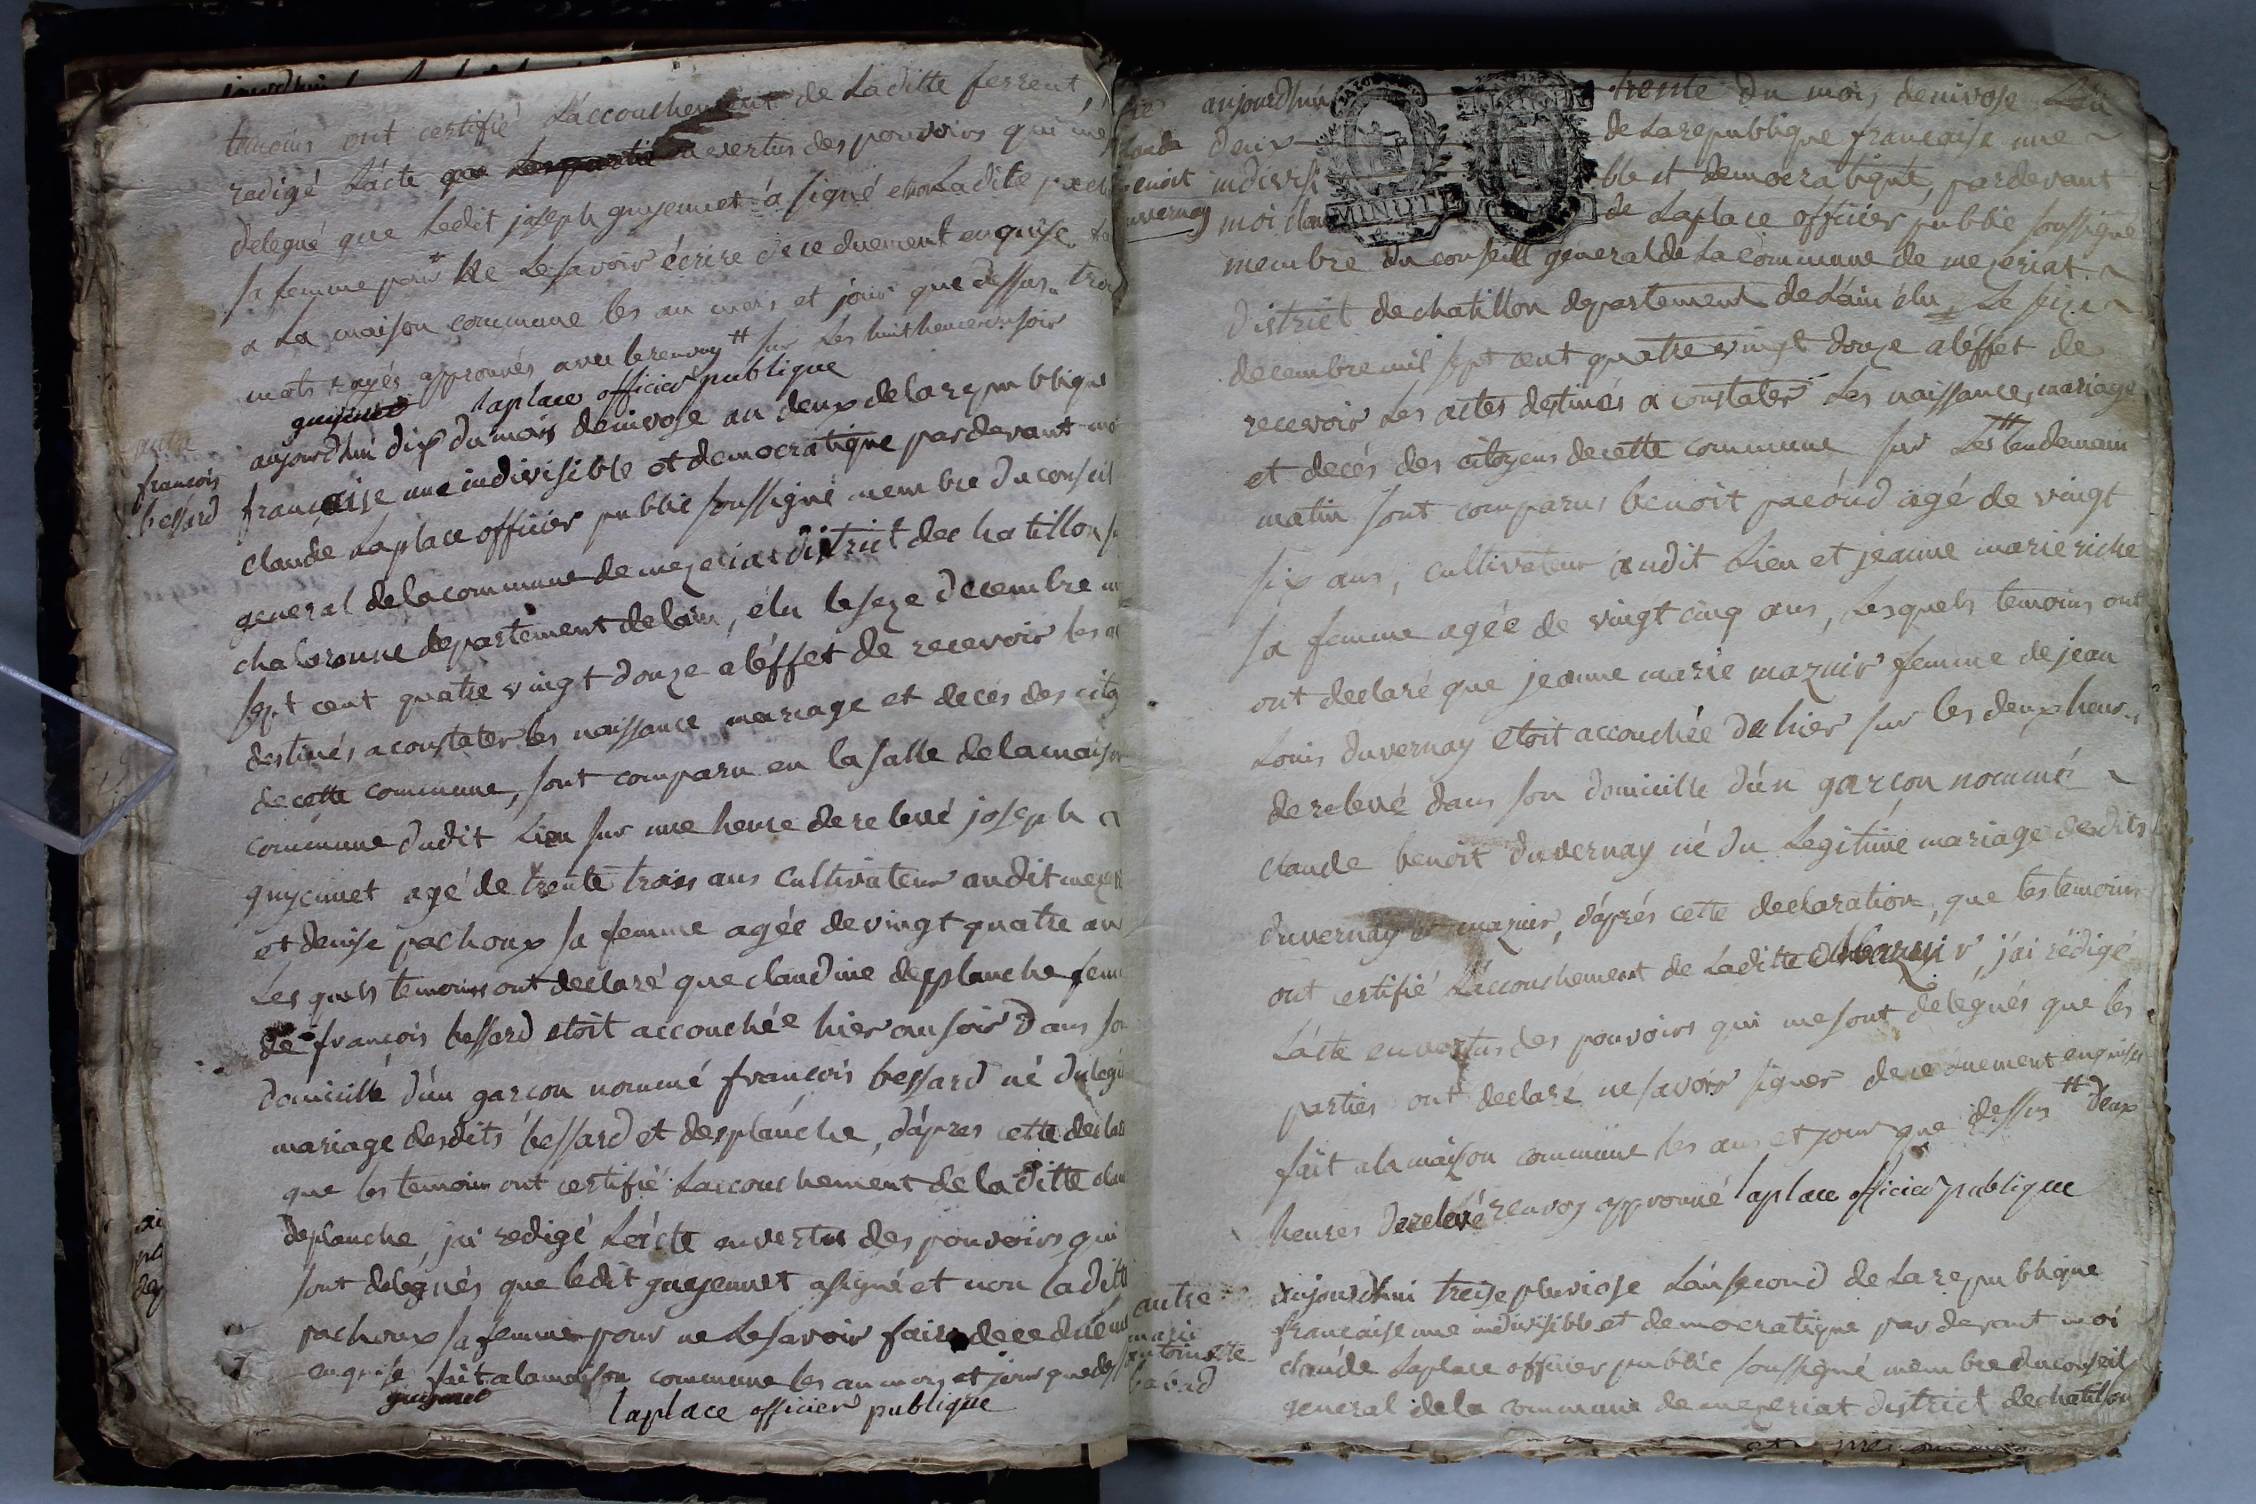 temoins ont certifié L'accouchement de Laditte ferrent,
redigé L'acte que Les partie en vertus des pouvoirs qui me
delegué que Ledit joseph guyennet a signé et non Ladite pach
sa femme pour ne Le savoir écrire de ce duement enquise
a La maison commune les an mois et jour que dessus trois
mots rayés approuvés avec le renvoy # sur Les huit heures du soir
guyennet laplace officier publique
autre
françois
bessard
aujourdhui dix du mois de nivose an deux de la republique
française une indivisible et democratique pardevant moi
claude Laplace officier public soussigné membre du conseil
general de la commune de mezeriat district de chatillon s
chalaronne departement de lain, élu le seze decembre m
sept cent quatre vingt douze a l'éffet de recevoir les a
destinés a constater les naissance mariage et decés des cito
de cette commune, sont comparu en la salle de la maison
commune dudit Lieu sur une heure de relevé joseph
guyennet agé de trente trois ans cultivateur audit mezer
et denise pachoux sa femme agée de vingt quatre an
Les quels temoins ont declaré que claudine desplanche fem
de françois bessard etoit accouchée hier au soir dans son
domicille d'un garçon nommé françois bessard né du legi
mariage desdits bessard et desplanche, d'apres cette decla
que les temoins ont certifié L'accouchement de la ditte clau
deplanche, jai redigé L'acte en vertus des pouvoirs qui
sont delegués que ledit guyennet a signé et non laditte
pachoux sa femme pour ne Le savoir faire de ce duement
enquise fait a la maison commune les an mois et jour que dess
guyennet
laplace officier publique
claude
benoit
duvernay
aujourdhui trente du mois de nivose L'an
deux de La republique française une
indivisi ble et democratique, pardevant
moi clau de Laplace officier public soussigné
MINUTE
membre du conseill general de La commune de mezeriat
district de chatillon departement de L'ain élu Le seze
decembre mil sept cent quatre vingt douze a l'éffet de
recevoir Les actes destinés a constater Les naissance, mariage
et decés des citoyens de cette commune sur Les # Landemain
matin sont comparus benoit pacoud agé de vingt
six ans, cultivateur audit Lieu et jeanne marie riche
sa femme agée de vingt cinq ans, Lesquels temoins ont
ont declaré que jeanne marie mazuir femme de jean
Louis duvernay etoit accouchée du hier sur les deux heures
de relevé dans son domicille d'un garçon nommé
claude benoit duvernay né du Legitime mariage desdits
duvernay et mazuir, d'aprés cette declaration, que les temoins
ont certifié L'accouchement de Laditte mazuir, j'ai rédigé
L'acte en vertus des pouvoirs qui me sont delegués que les
parties ont declaré ne savoir signer de ce duement enquises
fait a la maison commune les ans et jour que dessus # deux
heures de relevé renvoy approuvé laplace officier publique
autre
marie
antoinette
aujourdhui treise pluviose L'an second de La republique
française une indivisible et democratique par devant moi
claude Laplace officier public soussigné membre du conseil
general de la commune de mezeriat district de chatillon